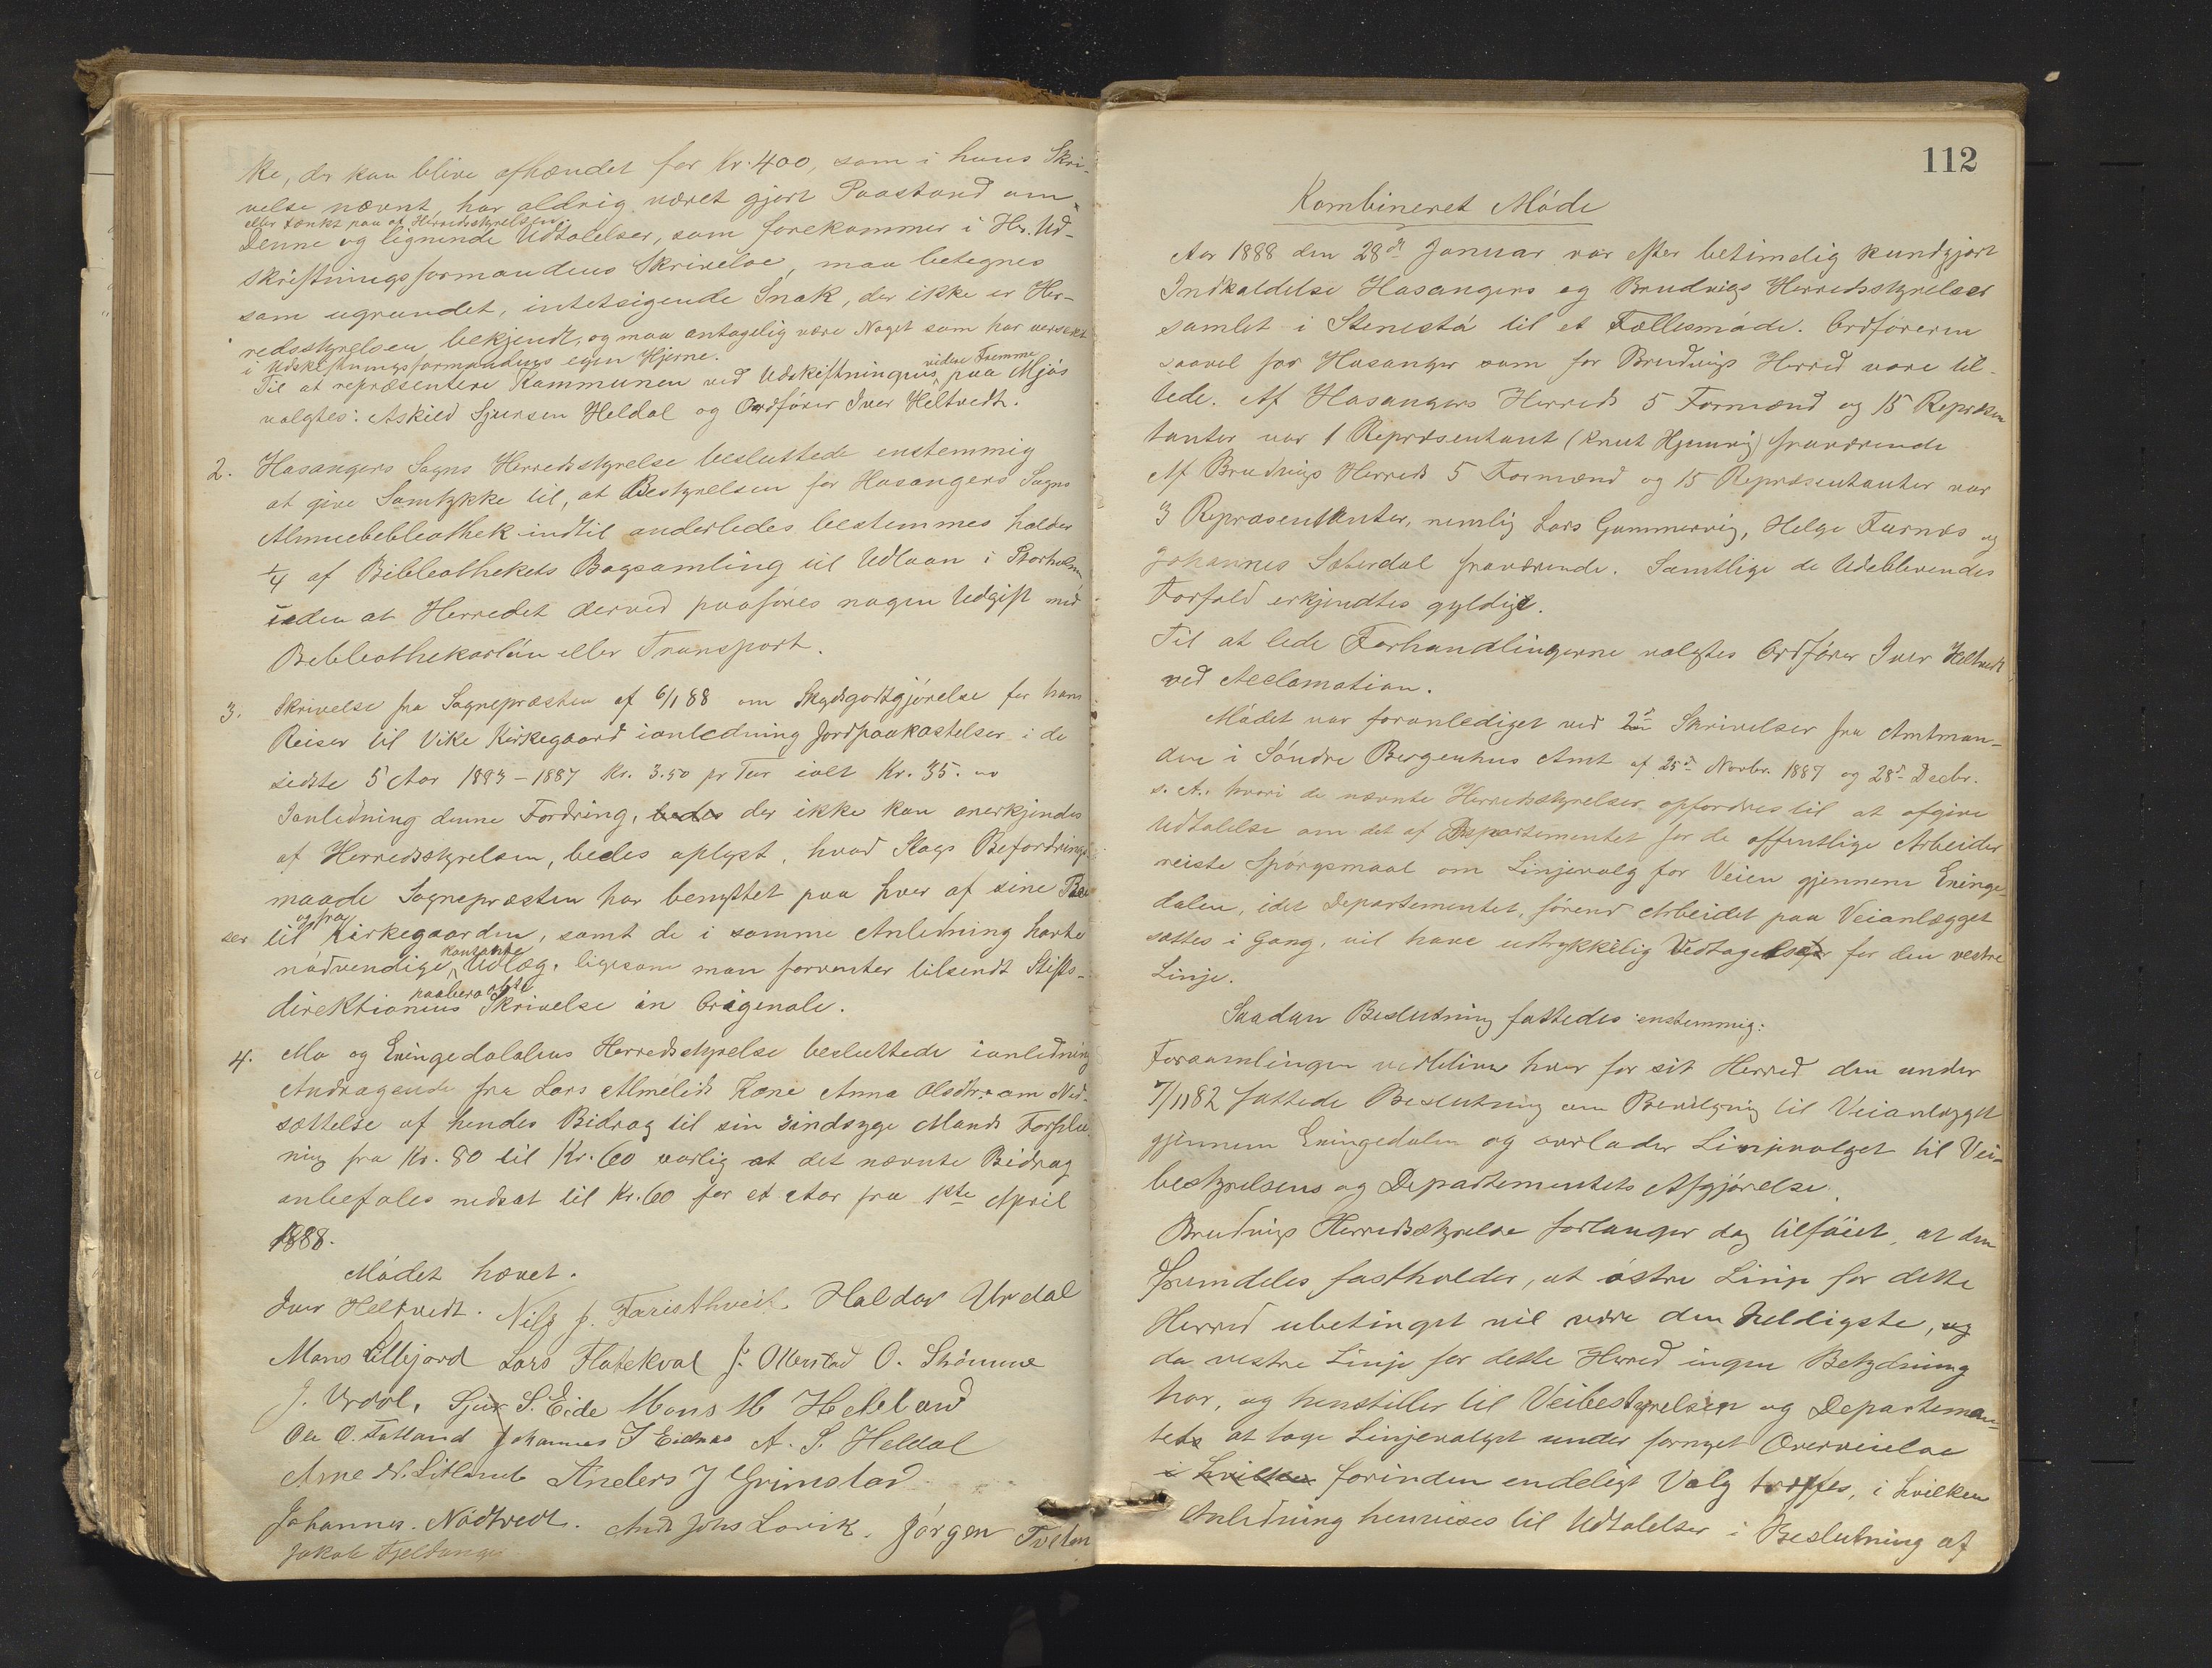 ke, der kan blive afhændet for Kr. 400, som i hans Skri-
velse nævnt, har aldrig været gjort Paastand om
eller tænkt paa af Herredsstyrelsen.
Denne og lignende Udtalelser, som forekommer i Hr. Ud-
skiftningsformandens Skrivelse, maa betegnes
som ugrundet, intetsigende Snak, der ikke er Her-
redsstyrelsen bekjendt, og maa antagelig være Noget som har
i Udskiftningsformandens egen Hjerne.
videre Fremme
Til at repræsentere Kommunen ved Udskiftningens paa Mjøs
valgtes: Askild Sjursen Heldal og Ordfører Iver Heltvedt.
2. Hosangers Sogns Herredsstyrelse besluttede enstemmig
at give Samtykke til, at Bestyrelsen for Hosangers Sogns
Almuebibliothek indtil anderledes bestemmes holder
1/4 af Bibliothekets Bogsamling til Udlaan i Storholm,
uden at Herredet derved paaføres nogen Udgift med
Bibliothekarløn eller Transport.
3. Skrivelse fra Sognepræsten af 6/1 88 om Skydsgodtgjørelse for hans
Reiser til Vike Kirkegaard ianledning Jordpaakastelser i de
sidste 5 Aar 1883-1887 Kr. 3.50 pr Tur ialt Kr. 35.00
Ianledning denne Fordring, bedes der ikke kan anerkjendes
af Herredsstyrelsen, bedes oplyst, hvad Slags Befordrings
maade Sognepræsten har benyttet paa hver af sine Rei
og fra
ser til Kirkegaarden, samt de i samme Anledning havte
kontante
nødvendige Udlæg, ligesom man forventer tilsendt Stifts-
paaberaabte
direktionens Skrivelse in originale.
4. Mo og Exingedalens Herredsstyrelse besluttede ianledning
Andragende fra Lars Almelids Kone Anna Olsdtr. om Ned-
sættelse af hendes Bidrag til sin sindsyge Mands Forplei
ning fra Kr. 80 til Kr. 60 aarlig at det nævnte Bidrag
anbefales nedsat til Kr. 60 for et Aar fra 1ste April
1888.
Mødet hævet.
Iver Heltvedt. Nils J. Faristhveit Haldor Urdal
Mons Lillejord Lars Flatekval J. Ollerstad O. Strömme
J. Urdal, Sjur S. Eide Mons M Helland
Ole O. Fatland Johannes J Eidnes A. S. Heldal
Arne N. Litland Anders J Grimstad
Johannes. Nødtvedt. And Johs Lovik. Jørgen Tveten
Jakob Fjeldanger
112
Kombineret Møde
Aar 1888 den 28de Januar var efter betimelig kundgjort
Indkaldelse Hosangers og Bruviks Herredsstyrelser
samlet i Stenestø til et Fællesmøde. Ordføreren
saavel for Hosanger som for Bruviks Herred vare til-
stede. Af Hosangers Herreds 5 Formænd og 15 Repræsen
tanter var 1 Repræsentant (Knut Hjemvig) fraværende
Af Bruviks Herreds 5 Formænd og 15 Repræsentanter var
3 Repræsentanter, nemlig Lars Gammervig, Helge Furnæs og
Johannes Sæterdal fraværende. Samtlige de Udeblevendes
Forfald erkjendtes gyldigt.
Til at lede Forhandlingerne valgtes Ordfører Iver Heltvedt
ved Acclamation.
Mødet var foranlediget ved 2de Skrivelser fra Amtman-
den i Søndre Bergenhus Amt af 25de Novbr. 1887 og 28de Decbr.
s. A. hvori de nævnte Herredsstyrelser opfordres til at afgive
Udtalelse om det af Departementet for de offentlige Arbeider
reiste Spørgsmaal om Linjevalg for Veien gjennem Exinge
dalen, idet Departementet, førend Arbeidet paa Veianlægget
sættes i Gang, vil have udtrykkelig Vedtagelse for den vestre
Linje.
Saadan Beslutning fattedes enstemmig:
Forsamlingen vedbliver hver for sit Herred den under
7/11 82 fattede Beslutning om Bevilgning til Veianlægget
gjennem Exingedalen og overlader Linjevalget til Vei-
bestyrelsens og Departementets Afgjørelse.
Bruviks Herredsstyrelse forlanger dog tilføiet, at den
fremdeles fastholder, at østre Linje for dette
Herred ubetinget vil være den heldigste, og
da vestre Linje for dette Herred ingen Betydning
har, og henstiller til Veibestyrelsen og Departemen-
tets at tage Linjevalget under fornyet Overveielse
i hvilken forinden endeligt Valg træffes, i hvilken
Anledning henvises til Udtalelser i Beslutning af